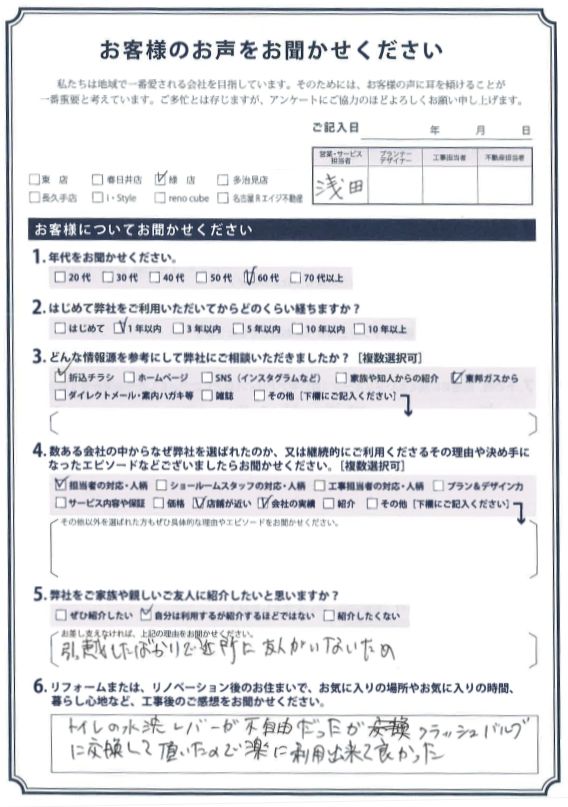 お客様のお声をお聞かせください
私たちは地域で一番愛される会社を目指しています。そのためには、お客様の声に耳を傾けることが
一番重要と考えています。ご多忙とは存じますが、アンケートにご協力のほどよろしくお願い申し上げます。
ご記入日 年 月 日
営業・サービス担当者 プランナーデザイナー 工事担当者 不動産担当者
浅田
□東 店 □春日井店 ☑緑 店 □多治見店
□長久手店 □i・Style □reno cube □名古屋Rエイジ不動産
お客様についてお聞かせください
1. 年代をお聞かせください。
□20代 □30代 □40代 □50代 ☑60代 □70代以上
2. はじめて弊社をご利用いただいてからどのくらい経ちますか？
□はじめて ☑1年以内 □3年以内 □5年以内 □10年以内 □10年以上
3. どんな情報源を参考にして弊社にご相談いただきましたか？［複数選択可］
☑折込チラシ □ホームページ □SNS（インスタグラムなど） □家族や知人からの紹介 ☑東邦ガスから
□ダイレクトメール・案内ハガキ等 □雑誌 □その他［下欄にご記入ください］
4. 数ある会社の中からなぜ弊社を選ばれたのか、又は継続的にご利用くださるその理由や決め手に
なったエピソードなどございましたらお聞かせください。［複数選択可］
☑担当者の対応・人柄 □ショールームスタッフの対応・人柄 □工事担当者の対応・人柄 □プラン＆デザイン力
□サービス内容や保証 □価格 ☑店舗が近い ☑会社の実績 □紹介 □その他［下欄にご記入ください］
その他以外を選ばれた方もぜひ具体的な理由やエピソードをお聞かせください。
5. 弊社をご家族や親しいご友人に紹介したいと思いますか？
□ぜひ紹介したい ☑自分は利用するが紹介するほどではない □紹介したくない
お差し支えなければ、上記の理由をお聞かせください。
引越したばかりで近所に友人がいないため
6. リフォームまたは、リノベーション後のお住まいで、お気に入りの場所やお気に入りの時間、
暮らし心地など、工事後のご感想をお聞かせください。
トイレの水洗レバーが不自由だったが 交換 クラッシュバルブ
に交換して頂いたので楽に利用出来て良かった